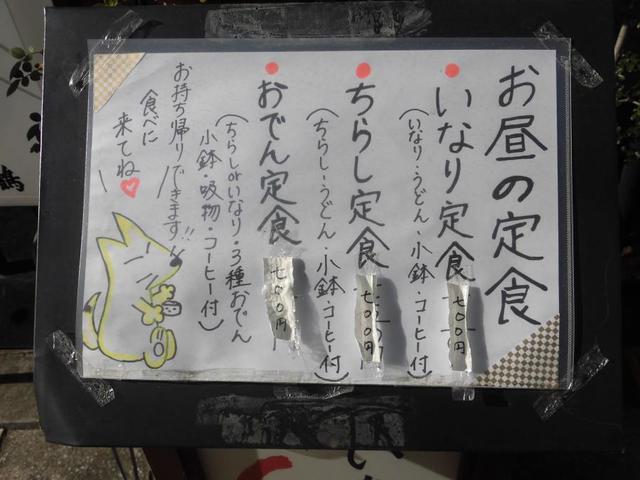 お昼の定食
いなり定食 七〇〇円
(いなり・うどん・小鉢・コーヒー付)
ちらし定食 七〇〇円
(ちらし・うどん・小鉢・コーヒー付)
おでん定食 七〇〇円
(ちらしorいなり・3種おでん
小鉢・吸物・コーヒー付)
お持ち帰りできます!!
食べに
来てね
鶴